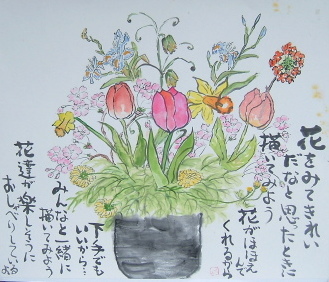 花をみてきれい
だなと思ったときに
描いてみよう
花がほほえ
んで
くれるから
下手でも
いいから…
みんなと一緒に
描いてみよう
花達が楽しそうに
おしゃべりしている
よ